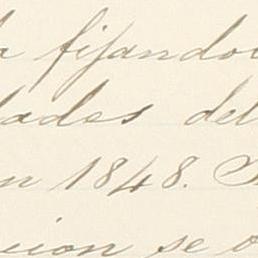 a fijando
dades del
n 1848.
cion se